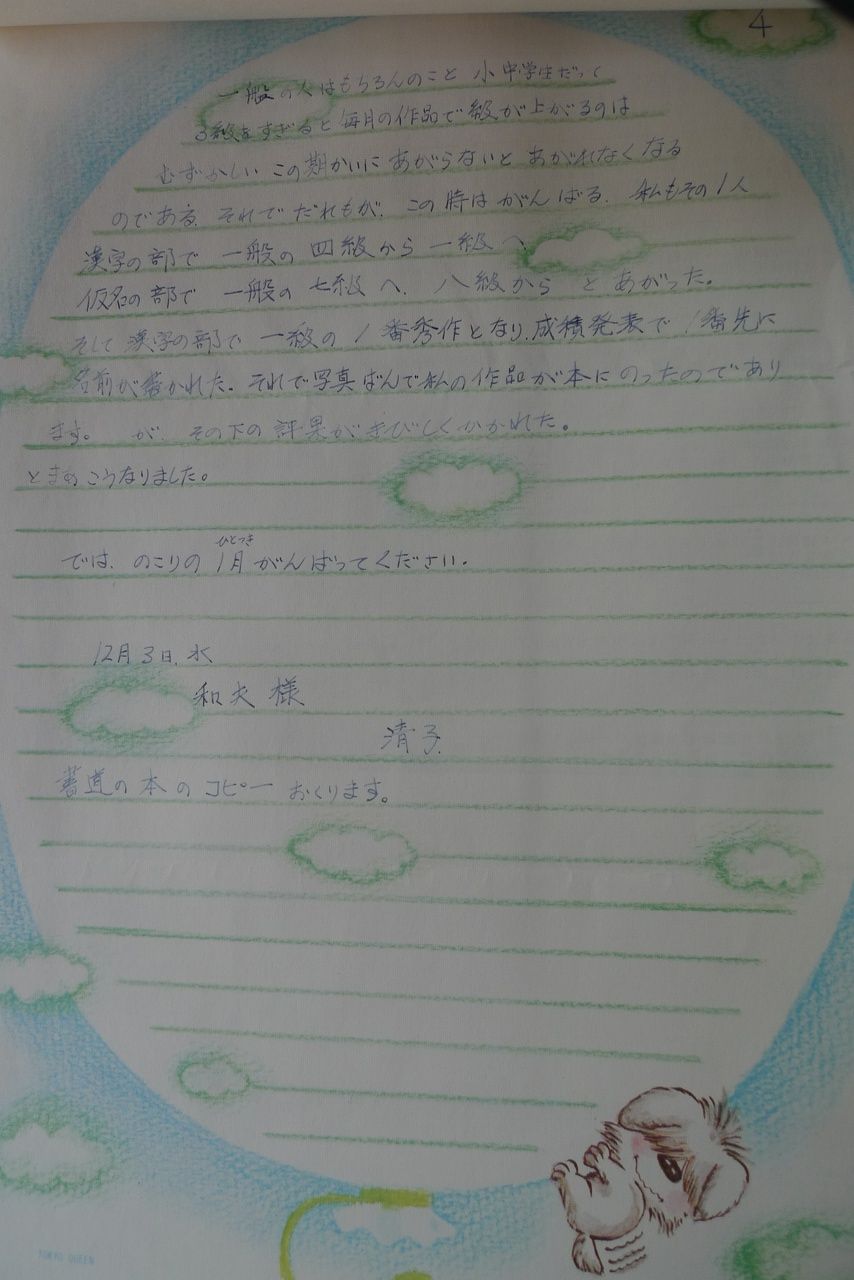 4
一般の人はもちろんのこと 小中学生だって
3級をすぎると毎月の作品で級が上がるのは
むずかしい この期かいにあがらないと あがれなくなる
のである。それでだれもが、この時はがんばる。私もその1人
漢字の部で 一般の四級から 一級へ、
仮名の部で 一般の七級へ、八級から とあがった。
そして漢字の部で 一級の1番秀作となり、成積発表で1番先に
名前が書かれた。それで写真ばんで私の作品が本にのったのであり
ます。 が、その下の評果がきびしくかかれた。
とまあこうなりました。
では、のこりの1月がんばってください。
ひとつき
12月3日、水
和夫様
清子
書道の本のコピー おくります。